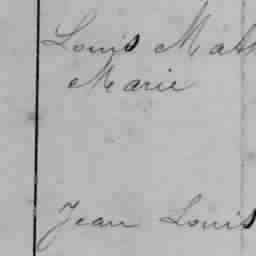 Louis
Marie
Jean Louis